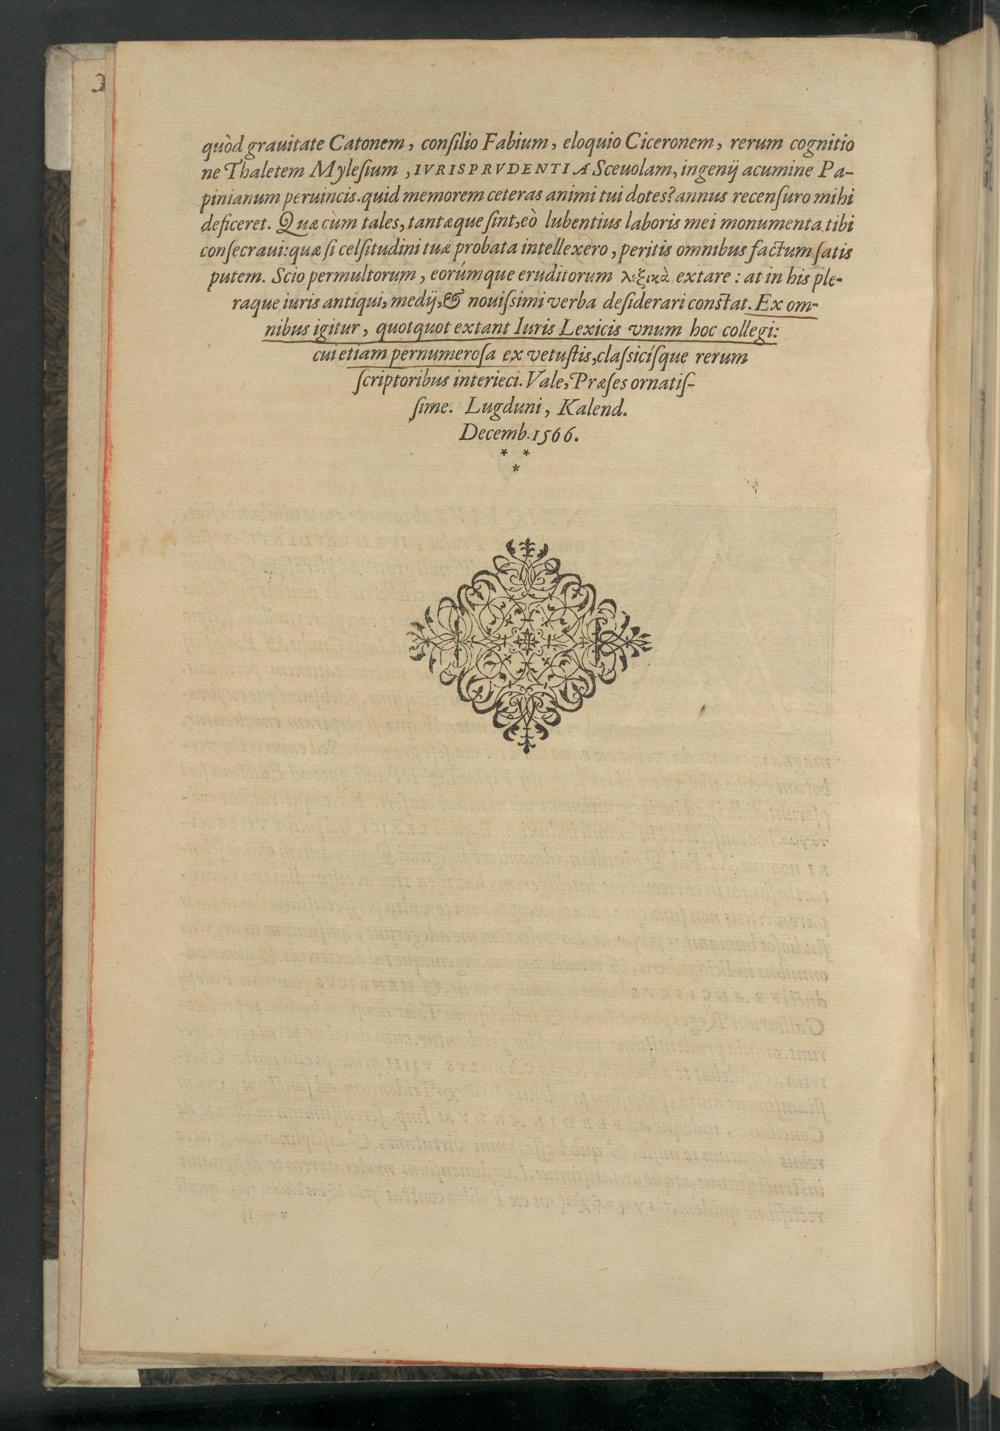 quòd grauitate Catonem, consilio Fabium, eloquio Ciceronem, rerum cognitio
ne Thaletem Mylesium, IVRISPRVDENTIA Sceuolam, ingenij acumine Pa-
pinianum peruincis. quid memorem ceteras animi tui dotes? annus recensuro mihi
deficeret. Quæ cùm tales, tantæque sint, eò lubentius laboris mei monumenta tibi
consecraui: quæ si celsitudini tuæ probata intellexero, peritis omnibus factum satis
putem. Scio permultorum, eorúmque eruditorum λεξικὰ extare: at in his ple-
raque iuris antiqui, medij, & nouissimi verba desiderari constat. Ex om-
nibus igitur, quotquot extant Iuris Lexicis vnum hoc collegi:
cui etiam pernumerosa ex vetustis, classicísque rerum
scriptoribus interieci. Vale, Præses ornatis-
sime. Lugduni, Kalend.
Decemb. 1566.
* *
*